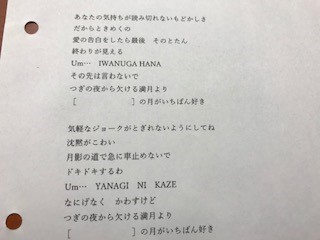 あなたの気持ちが読み切れないもどかしさ
だからときめくの
愛の告白をしたら最後　そのとたん
終わりが見える
Um…　IWANUGA HANA
その先は言わないで
つぎの夜から欠ける満月より
[　　　　　　　] の月がいちばん好き

気軽なジョークがとぎれないようにしてね
沈黙がこわい
月影の道で急に車止めないで
ドキドキするわ
Um…　YANAGI　NI　KAZE
なにげなく　かわすけど
つぎの夜から欠ける満月より
[　　　　　　　] の月がいちばん好き